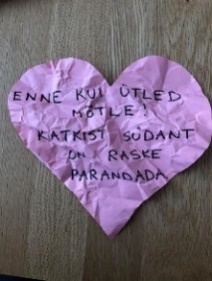 ENNE KUI ÜTLED
MÕTLE!
KATKIST SÜDANT
ON RASKE
PARANDADA